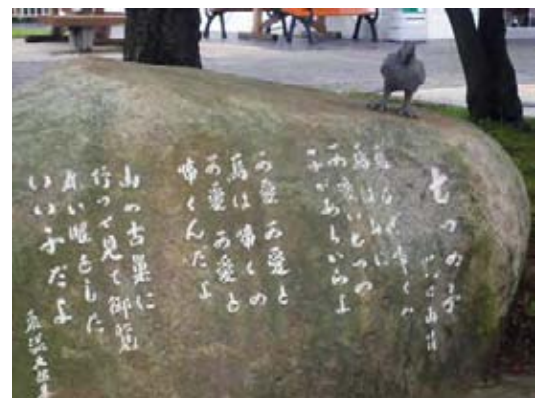 七つの子
野口雨情
烏なぜ啼くの
烏は山に
可愛い七つの
子があるからよ
可愛 可愛と
烏は啼くの
可愛 可愛と
啼くんだよ
山の古巣に
行つて見て御覧
丸い眼をした
いい子だよ